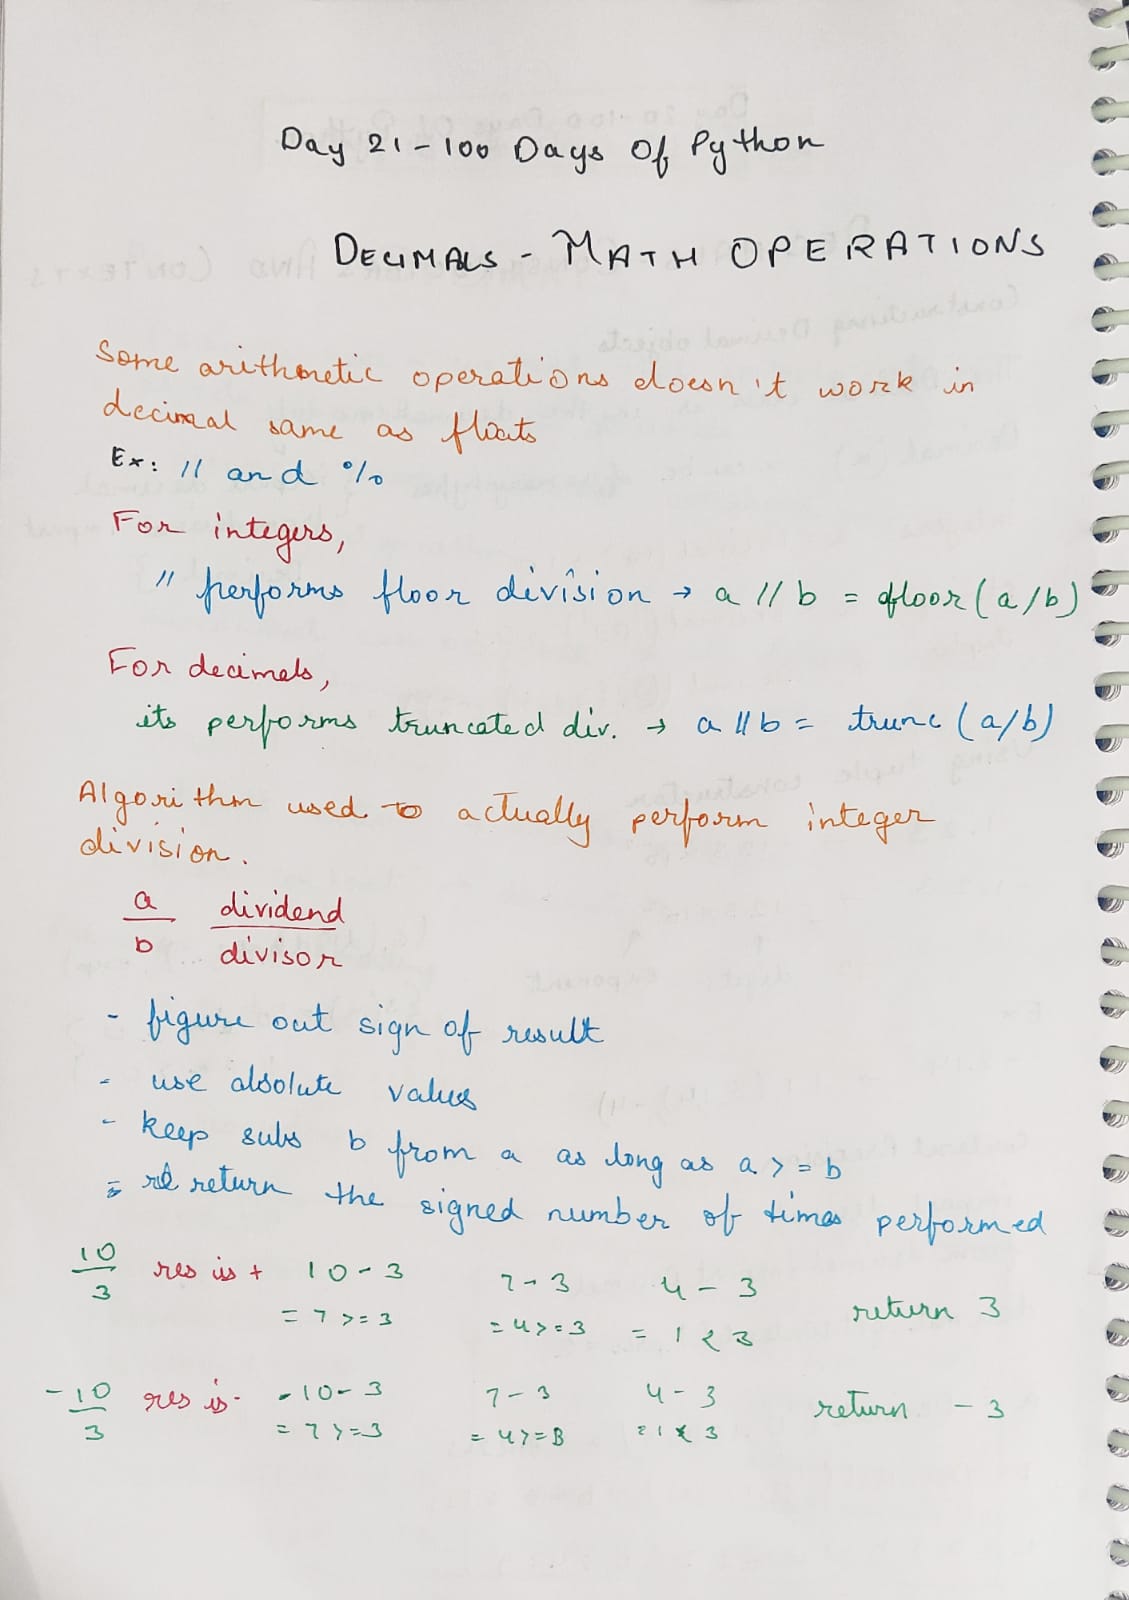 Day 21 - 100 Days Of Python
DECIMALS - MATH OPERATIONS
Some arithmetic operations doesn't work in
decimal same as floats
Ex: // and %
For integers,
// performs floor division → a // b = floor (a/b)
For decimals,
its performs truncated div. → a // b = trunc (a/b)
Algorithm used to actually perform integer
division.
a dividend
b divisor
- figure out sign of result
- use absolute values
- keep subs b from a as long as a >= b
- return the signed number of times performed
10/3 res is + 10 - 3 7 - 3 4 - 3 return 3
= 7 >= 3 = 4 >= 3 = 1 < 3
-10/3 res is - -10 - 3 7 - 3 4 - 3 return - 3
= 7 >= 3 = 4 >= 3 = 1 < 3